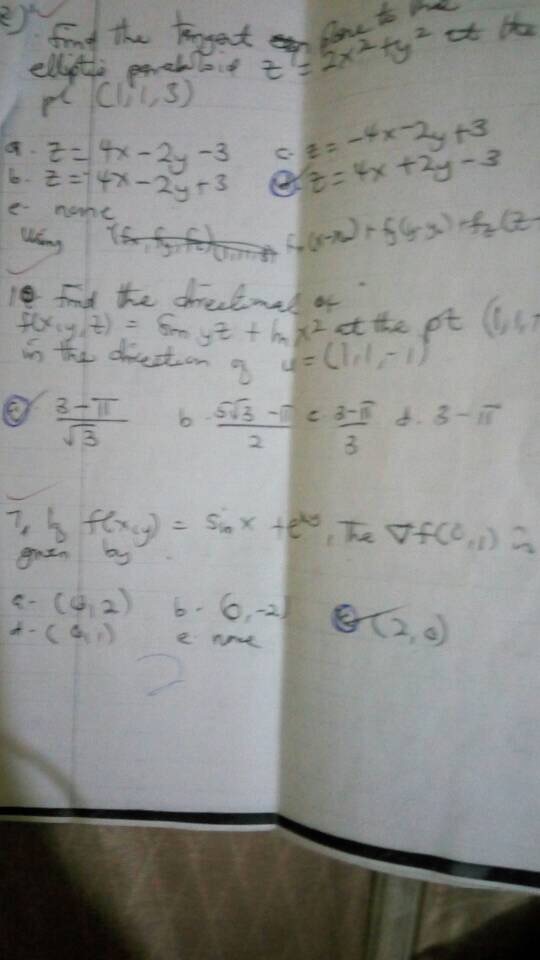 Find the Tangent plane to the
elliptic paraboloid z = 2x² + y² at the
pt (1, 1, 3)
a. z = 4x - 2y - 3 c. z = -4x - 2y + 3
b. z = 4x - 2y + 3 d. z = 4x + 2y - 3
e. none
Using
10. Find the directional of
f(x, y, z) = Sin yz + ln x² at the pt (1, 1,
in the direction of u = (1, 1, -1)
a. 3 - π / √3 b. 5√3 - π / 2 c. 3 - π / 3 d. 3 - π
7, If f(x, y) = Sin x + e^xy, The ∇f(0, 1) is
given by
a - (0, 2) b - (0, -2) c (2, 0)
d - (0, 1) e none